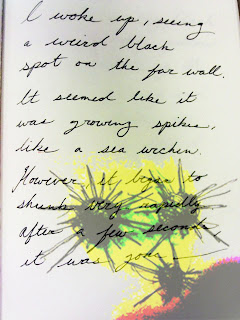 I woke up, seeing
a weird black
spot on the far wall.
It seemed like it
was growing spikes,
like a sea urchin.
However it began to
shrink very rapidly
after a few seconds
it was gone